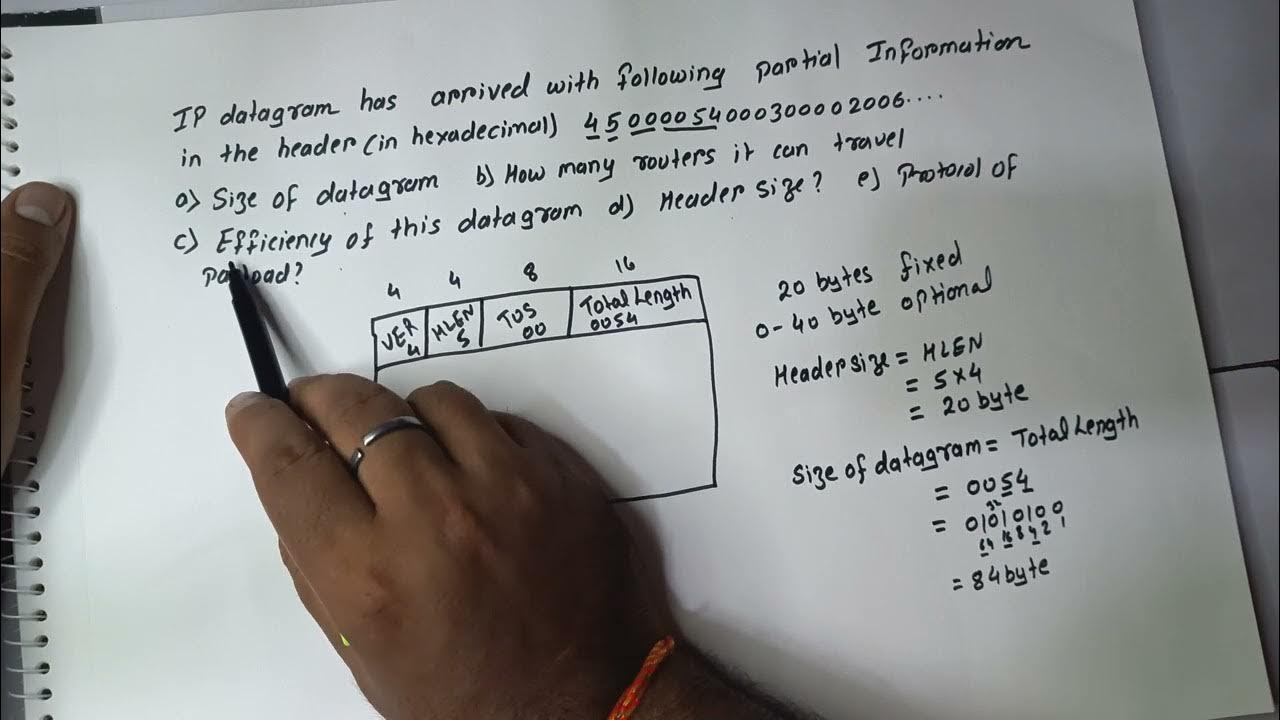 IP datagram has arrived with following partial Information
in the header (in hexadecimal) 45000054000300002006....
a) Size of datagram b) How many routers it can travel
c) Efficiency of this datagram d) Header size? e) Protocol of
payload?
4 4 8 16
VER HLEN TOS Total Length
4 5 00 0054
20 bytes fixed
0-40 byte optional
Header size = HLEN
= 5x4
= 20 byte
Size of datagram = Total Length
= 0054
32
= 01010100
64 16 8 4 2 1
= 84 byte